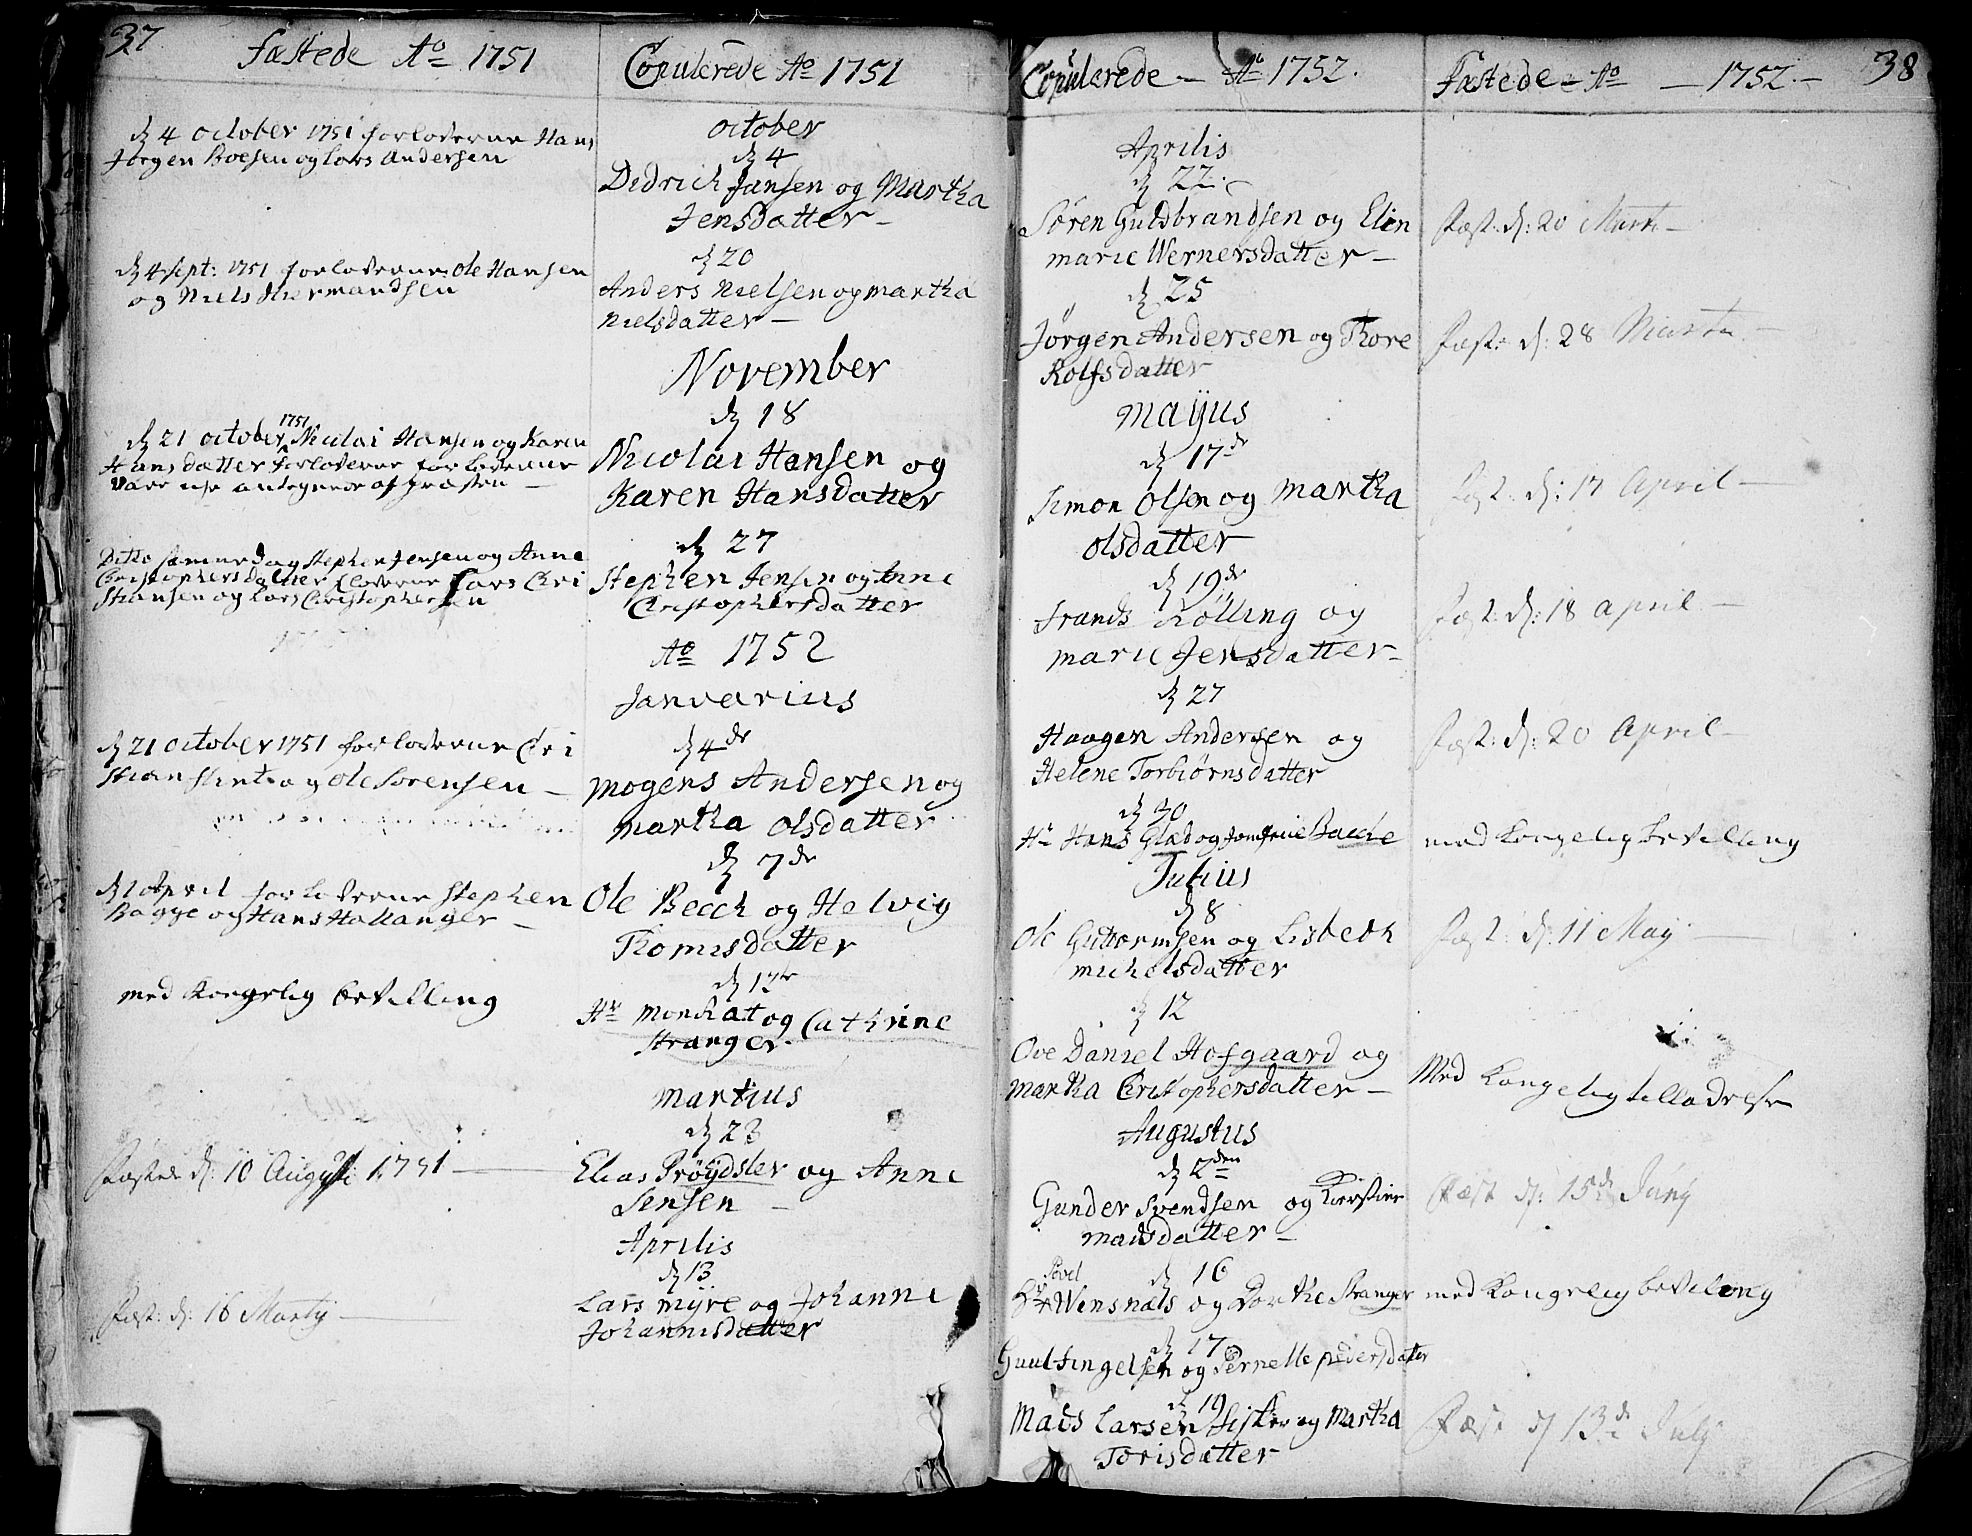 37
Fæstede Ao 1751
d 4 october 1751 forloverne Hans
Jørgen Boesen og Lars Andersen
d 4 sept: 1751 forloverne Ole Hansen
og Niels Hiermandsen
d 21 october 1751 Nicolai Hansen og Karen
Hansdatter forloverne forloverne
vare antegnede af præsten —
Ditto samme dag Stephen Jensen og Anne
Christophersdatter floverne Lars Chri
stiansen og Lars Christophersen
d 21 october 1751 forloverne Chri
stian og Ole Sørensen —
d 1 April forloverne Stephen
Bagge og Hans Hollanger —
med Kongelig bevilling
Fæstede d: 10 Augusti 1751 —
Fæst: d: 16 Martij —
Copulerede Ao 1751
october
d 4
Didrich Jansen og Martha
Jensdatter —
d 20
Anders Nielsen og martha
Nielsdatter —
November
d 18
Nicolai Hansen og
Karen Hansdatter
d 27
Stephen Jensen og Anne
Christophersdatter
Ao 1752
Janvarius
d 4de
Mogens Andersen og
martha olsdatter
d 7de
Ole Becch og Helvig
Thomisdatter
d 13
Hr Monrat og Cathrine
Stranger.
Martius
d 23
Elias Prøydsler og Anne
Jensen —
Aprilis
d 13
Lars myre og Johanne
Johannisdatter
Copulerede — Ao 1752.
Aprilis
d 22. —
Søren Guldbrandsen og Elin
marie Wernersdatter —
d 25
Jørgen Andersen og Thore
Rolfsdatter
Maijus
d 17de
Simon Olsen og Martha
olsdatter
d 19de
Frands Kølling og
marie Jensdatter —
d 27
Haagen Andersen og
Helene Torbiørnsdatter
d 30
Hr Hans Glad og Bache
Julius
d 8
Ole Guttormsen og Lisbeth
michelsdatter
d 12
Ove Daniel Hofgaard og
martha Christophersdatter —
Augustus
d 2den
Gunder Svendsen og Kierstine
madsdatter —
d 16
Povel
Hr Wensnæs og Dorthe Stranger
d 17
Gunl og Pernelle pedersdatter
d 19
Mads Larsen Fisker og Martha
Torisdatter
Fæstede — Ao — 1752. —
38
Fæst. d: 20 Marti —
Fæst: d: 28 Martii —
Fæst: d: 17 April —
Fæst: d: 18 april —
Fæst: d: 20 April —
med Kongelig bevilling
Fæst: d: 11 Maij —
Med Kongelig tilladelse
Fæst d: 15de Junij
med Kongelig beviling
Fæst d 13de July